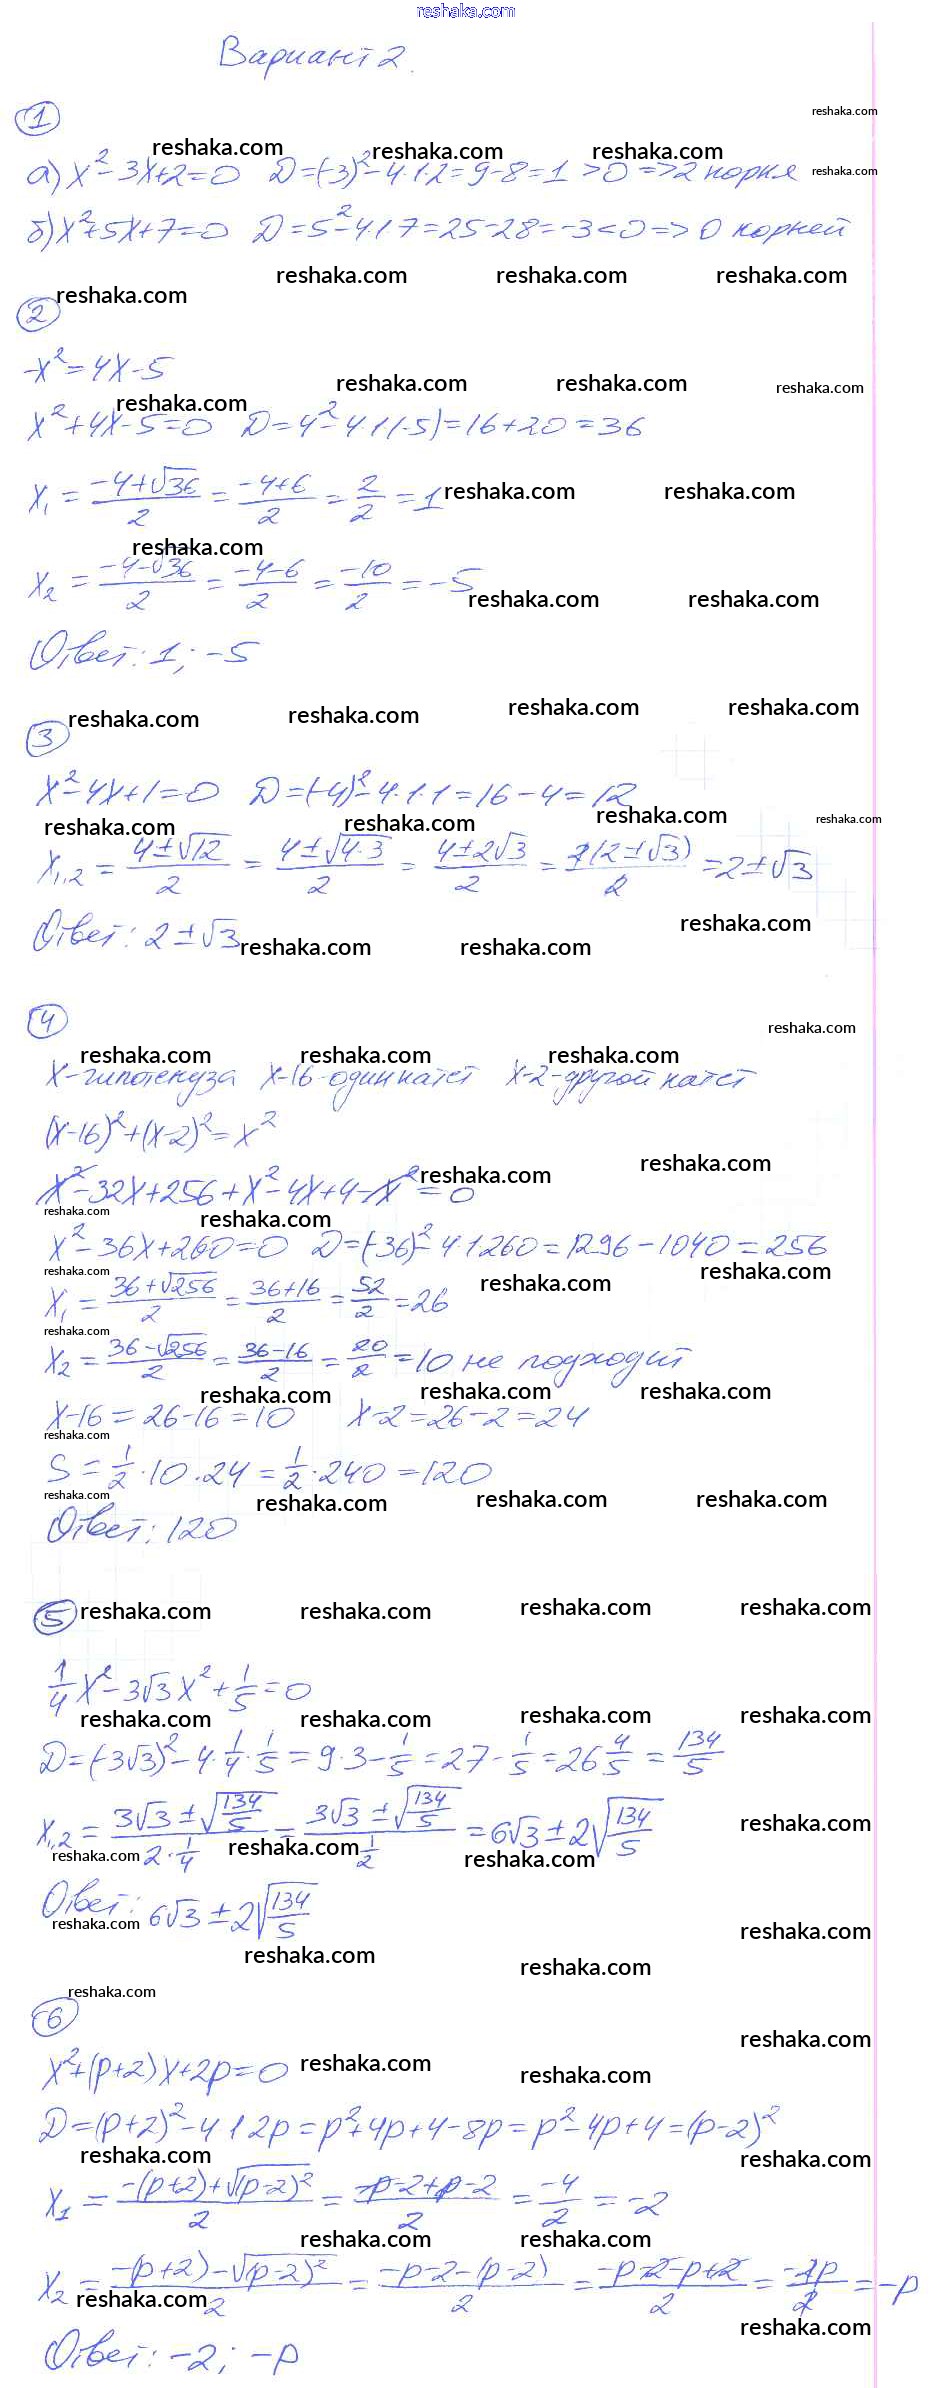 reshaka.com
Вариант 2.
1
а) x² - 3x + 2 = 0 D = (-3)² - 4·1·2 = 9 - 8 = 1 > 0 => 2 корня
б) x² + 5x + 7 = 0 D = 5² - 4·1·7 = 25 - 28 = -3 < 0 => 0 корней
2
-x² = 4x - 5
x² + 4x - 5 = 0 D = 4² - 4·1·(-5) = 16 + 20 = 36
x₁ = (-4+√36)/2 = (-4+6)/2 = 2/2 = 1
x₂ = (-4-√36)/2 = (-4-6)/2 = -10/2 = -5
Ответ: 1; -5
3
x² - 4x + 1 = 0 D = (-4)² - 4·1·1 = 16 - 4 = 12
x₁,₂ = (4±√12)/2 = (4±√(4·3))/2 = (4±2√3)/2 = 2(2±√3)/2 = 2±√3
Ответ: 2±√3
4
x - гипотенуза x-16 - один катет x-2 - другой катет
(x-16)² + (x-2)² = x²
x² - 32x + 256 + x² - 4x + 4 - x² = 0
x² - 36x + 260 = 0 D = (-36)² - 4·1·260 = 1296 - 1040 = 256
x₁ = (36+√256)/2 = (36+16)/2 = 52/2 = 26
x₂ = (36-√256)/2 = (36-16)/2 = 20/2 = 10 не подходит
x-16 = 26-16 = 10 x-2 = 26-2 = 24
S = 1/2 · 10 · 24 = 1/2 · 240 = 120
Ответ: 120
5
1/4 x² - 3√3 x² + 1/5 = 0
D = (-3√3)² - 4 · 1/4 · 1/5 = 9·3 - 1/5 = 27 - 1/5 = 26 4/5 = 134/5
x₁,₂ = (3√3 ± √(134/5))/(2 · 1/4) = (3√3 ± √(134/5))/(1/2) = 6√3 ± 2√(134/5)
Ответ: 6√3 ± 2√(134/5)
6
x² + (p+2)x + 2p = 0
D = (p+2)² - 4·1·2p = p² + 4p + 4 - 8p = p² - 4p + 4 = (p-2)²
x₁ = (-(p+2)+√(p-2)²)/2 = (-p-2+p-2)/2 = -4/2 = -2
x₂ = (-(p+2)-√(p-2)²)/2 = (-p-2-(p-2))/2 = (-p-2-p+2)/2 = -2p/2 = -p
Ответ: -2; -p